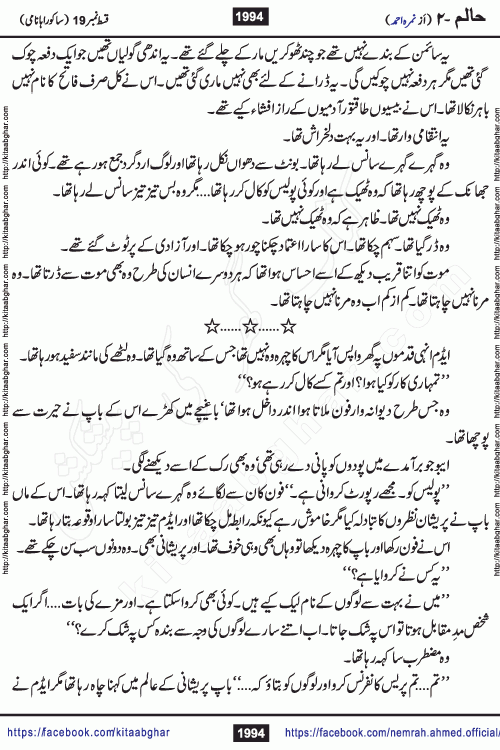 حالم -۲ (از نمرہ احمد)
1994
قسط نمبر 19 (ساکورا ہانامی)
یہ سائمن کے بندے نہیں تھے جو چند ٹھوکریں مار کے چلے گئے تھے۔ یہ اندھی گولیاں تھیں جو ایک دفعہ چوک
گئی تھیں مگر ہر دفعہ نہیں چوکیں گی۔ یہ ڈرانے کے لئے بھی نہیں ماری گئی تھیں۔ اس نے کل صرف فاتح کا نام نہیں
باہر نکالا تھا۔ اس نے بیسیوں طاقتور آدمیوں کے راز افشاء کیے تھے۔
یہ انتقامی وار تھا۔ اور یہ بہت دلخراش تھا۔
وہ گہرے گہرے سانس لے رہا تھا۔ بونٹ سے دھواں نکل رہا تھا اور لوگ ارد گرد جمع ہو رہے تھے۔ کوئی اندر
جھانک کے پوچھ رہا تھا کہ وہ ٹھیک ہے اور کوئی پولیس کو کال کر رہا تھا.... مگر وہ بس تیز تیز سانس لے رہا تھا۔
وہ ٹھیک نہیں تھا۔ ظاہر ہے کہ وہ ٹھیک نہیں تھا۔
وہ ڈر گیا تھا۔ سہم چکا تھا۔ اس کا سارا اعتماد چکنا چور ہو چکا تھا۔ اور آزادی کے پر ٹوٹ گئے تھے۔
موت کو اتنا قریب دیکھ کے اسے احساس ہوا تھا کہ ہر دوسرے انسان کی طرح وہ بھی موت سے ڈرتا تھا۔ وہ
مرنا نہیں چاہتا تھا۔ کم از کم اب وہ مرنا نہیں چاہتا تھا۔
☆......☆......☆
ایڈم انہی قدموں پہ گھر واپس آیا مگر اس کا چہرہ وہ نہیں تھا جس کے ساتھ وہ گیا تھا۔ وہ لٹھے کی مانند سفید ہو رہا تھا۔
”تمہاری کار کو کیا ہوا؟ اور تم کسے کال کر رہے ہو؟“
وہ جس طرح دیوانہ وار فون ملاتا ہوا اندر داخل ہوا تھا‘ باغیچے میں کھڑے اس کے باپ نے حیرت سے
پوچھا تھا۔
ایبو جو برآمدے میں پودوں کو پانی دے رہی تھی‘ وہ بھی رک کے اسے دیکھنے لگی۔
”پولیس کو۔ مجھے رپورٹ کروانی ہے۔“ فون کان سے لگائے وہ گہرے سانس لیتا کہہ رہا تھا۔ اس کے ماں
باپ نے پریشان نظروں کا تبادلہ کیا مگر خاموش رہے کیونکہ رابطہ مل چکا تھا اور ایڈم تیز تیز بولتا سارا وقوعہ بتا رہا تھا۔
اس نے فون رکھا اور باپ کا چہرہ دیکھا تو وہاں بھی وہی خوف تھا۔ اور پریشانی بھی۔ وہ دونوں سب سن چکے تھے۔
”یہ کس نے کروایا ہے؟“
”میں نے بہت سے لوگوں کے نام لیک کیے ہیں۔ کوئی بھی کروا سکتا ہے۔ اور مزے کی بات.... اگر ایک
شخص مدِ مقابل ہو تا تو اس پہ شک جاتا۔ اب اتنے سارے لوگوں کی وجہ سے بندہ کس پہ شک کرے؟“
وہ مضطرب سا کہہ رہا تھا۔
”تم.... تم پریس کانفرنس کرو اور لوگوں کو بتاؤ کہ....“ باپ پریشانی کے عالم میں کہنا چاہ رہا تھا مگر ایڈم نے
http://kitaabghar.com http://kitaabghar.com http://kitaabghar.com http://kitaabghar.com http://kitaabghar.com
https://facebook.com/kitaabghar
1994
https://facebook.com/nemrah.ahmed.official/